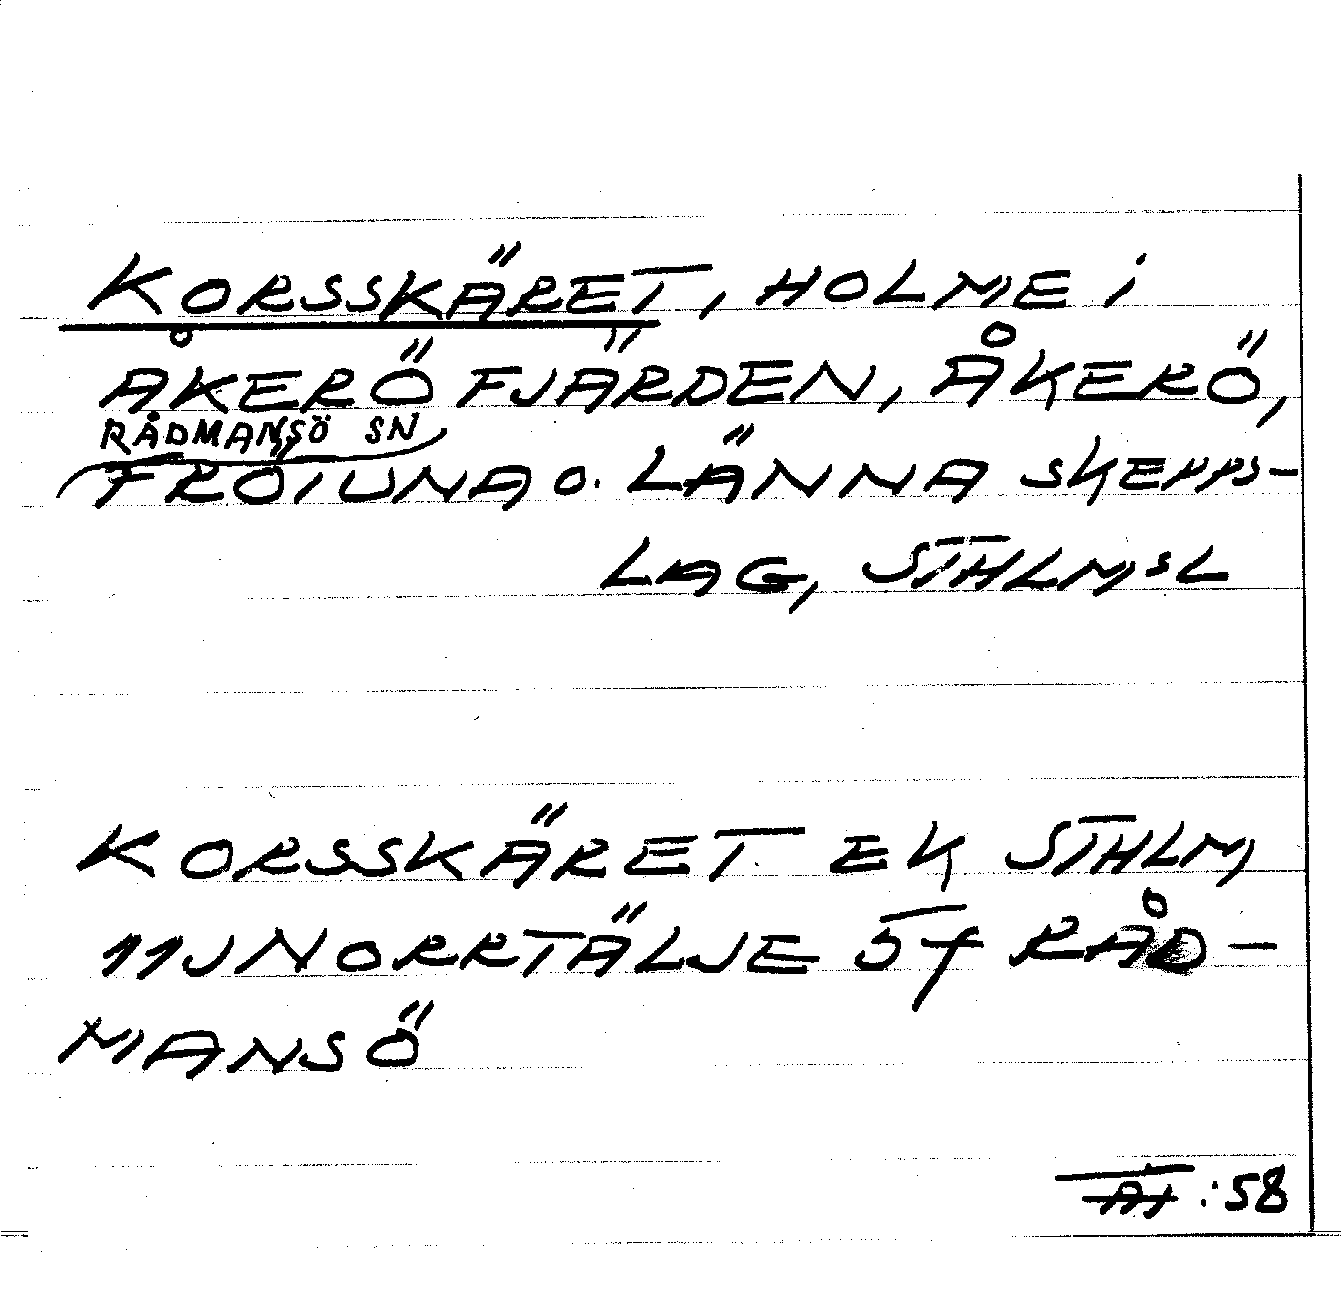 KORSSKÄRET, HOLME i
ÅKERÖ FJÄRDEN, ÅKERÖ,
RÅDMANSÖ SN
FRÖTUNA o. LÄNNA SKEPPS-
LAG, STHLMSL
KORSSKÄRET EK STHLM,
11J NORRTÄLJE 57 RÅD-
MANSÖ
:58